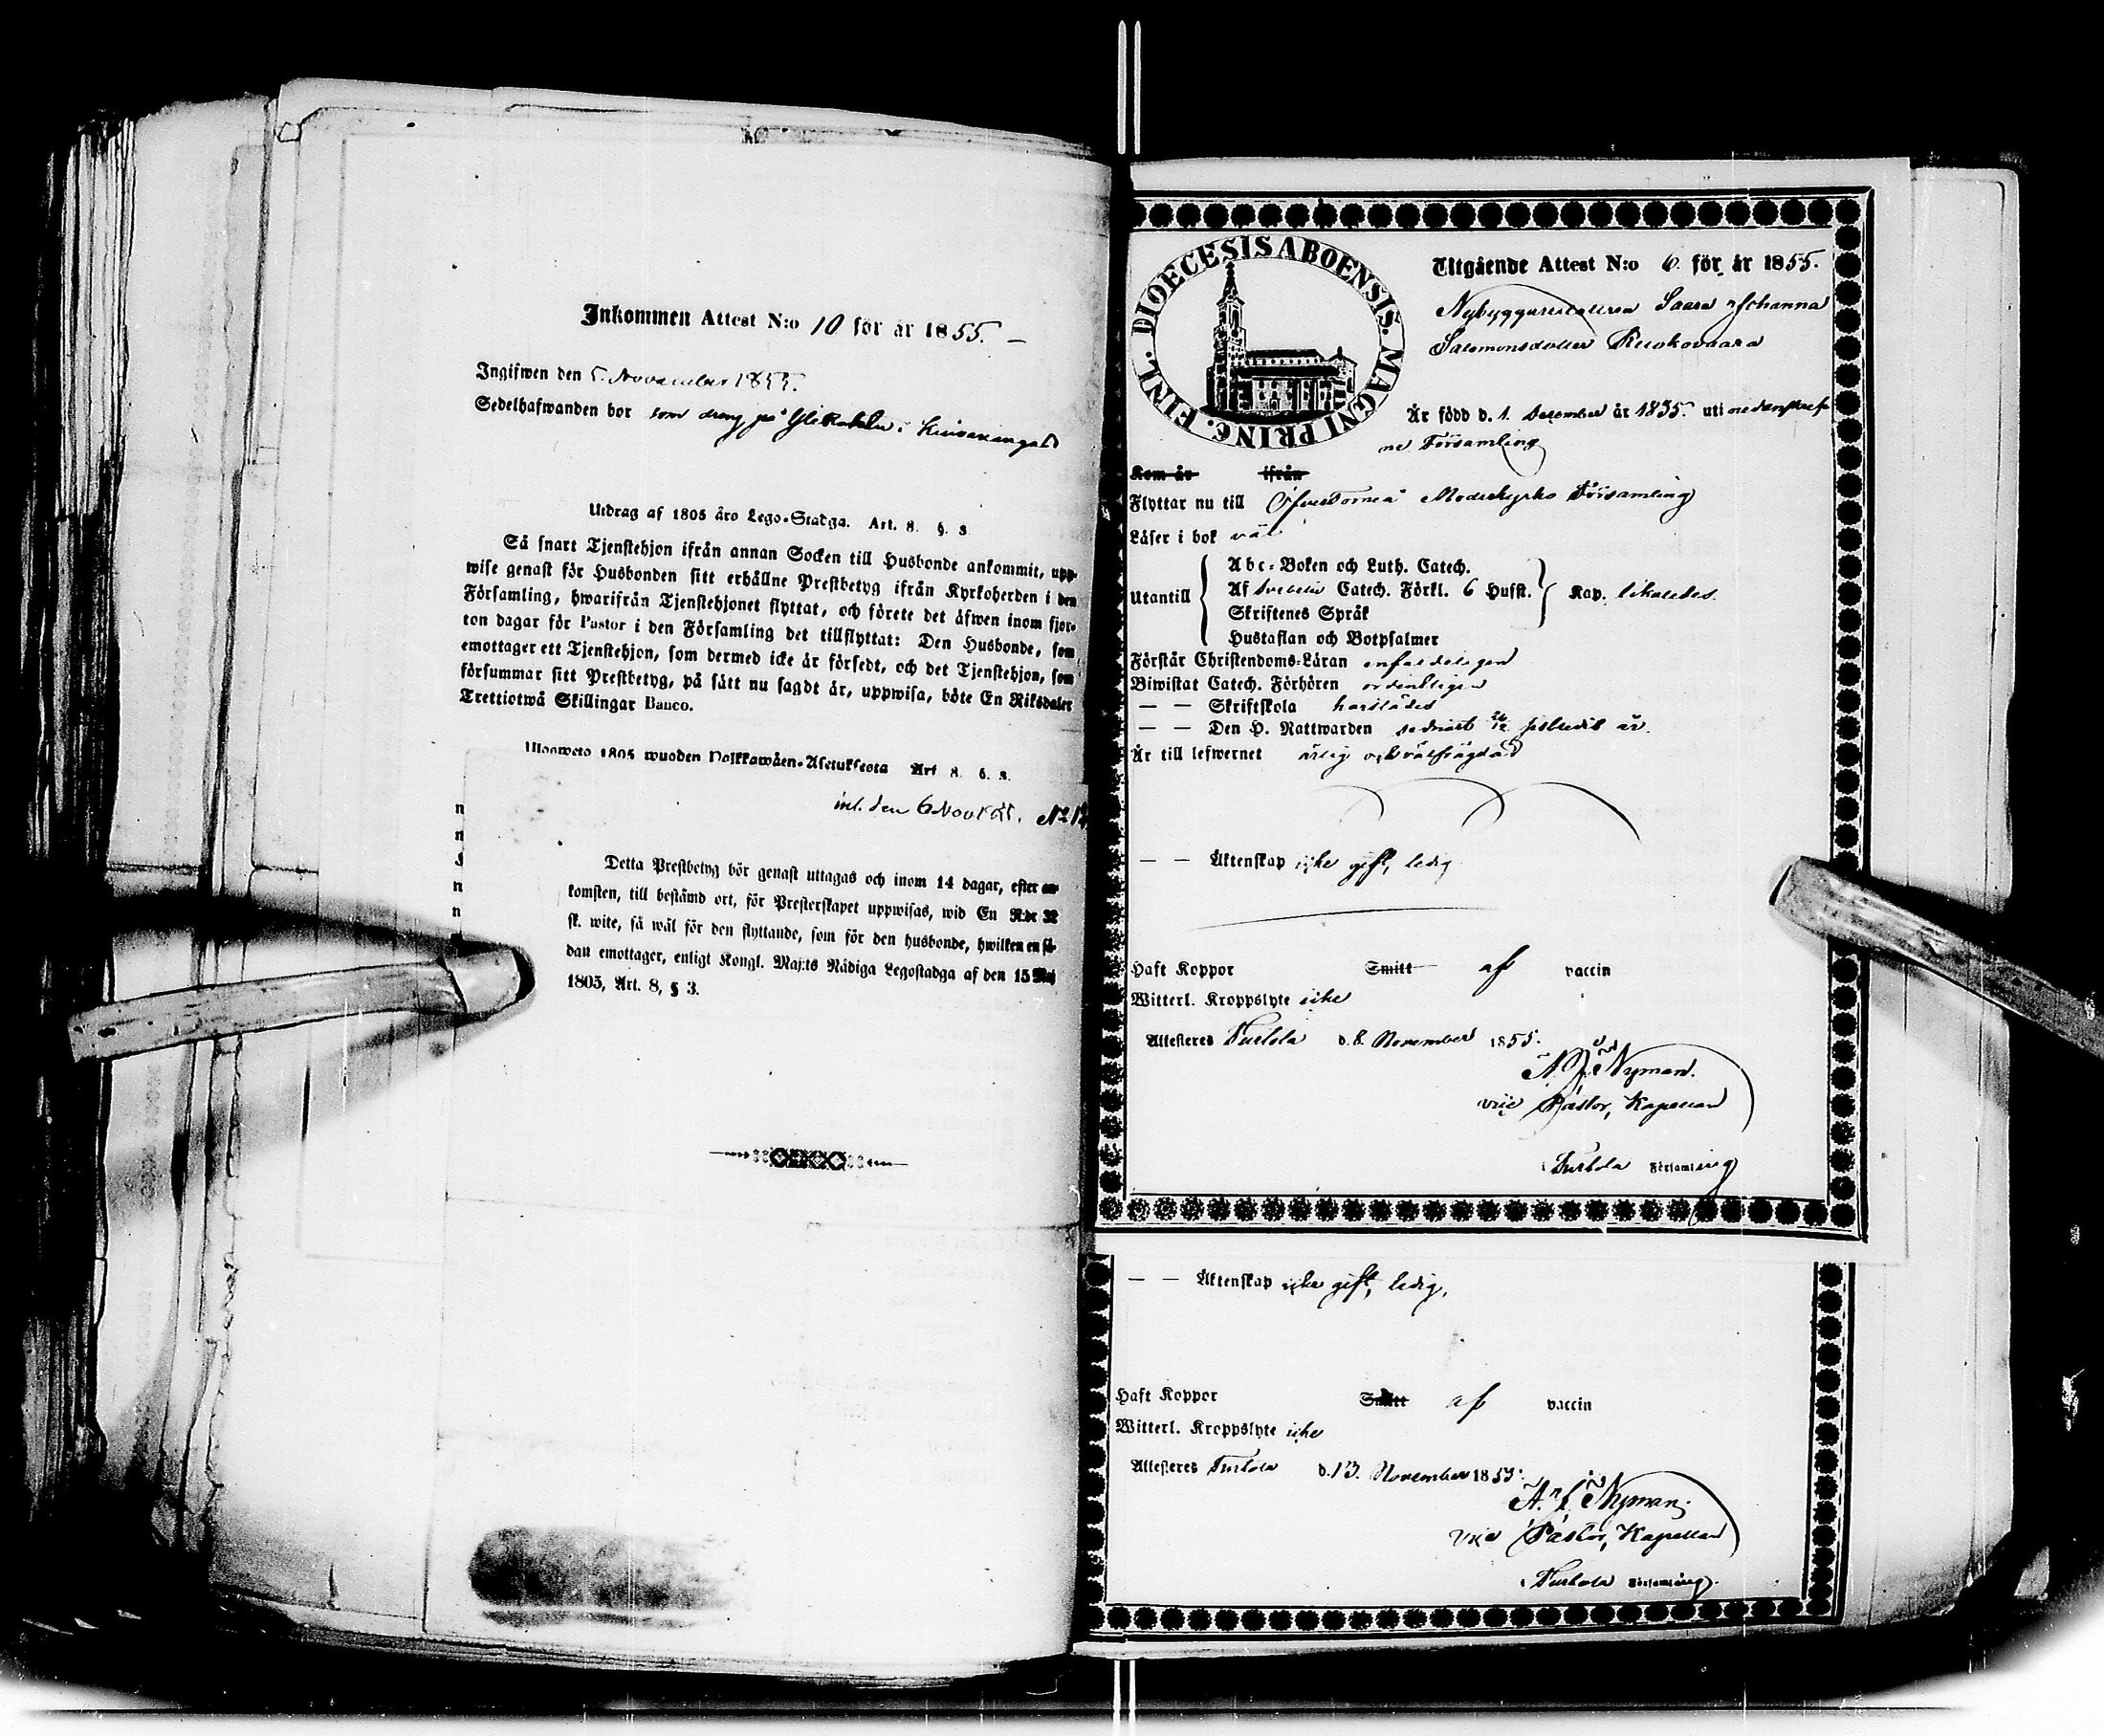 Inkommen Attest N:o 10 för år 1855.
Ingifwen den 5. November 1855.
Sedelhafwanden bor som dreng på
Utdrag af 1805 års Lego-Stadga. Art. 8. §. 3
Så snart Tjenstehjon ifrån annan Socken till Husbonde ankommit, upp-
wise genast för Husbonden sitt erhållne Prestbetyg ifrån Kyrkoherden i den
Församling, hwarifrån Tjenstehjonet flyttat, och förete det äfwen inom fjor-
ton dagar för Pastor i den Församling det tillflyttat: Den Husbonde, som
emottager ett Tjenstehjon, som dermed icke är försedt, och det Tjenstehjon, som
försummar sitt Prestbetyg, på sätt nu sagdt är, uppwisa, böte En Riksdaler
Trettiotwå Skillingar Banco.
Ulosweto 1805 wuoden Palkkawäen-Asetuksesta Art. 8. §. 3.
inl. den 6 Nov 1855. No
n
n
J
n
n
Detta Prestbetyg bör genast uttagas och inom 14 dagar, efter an-
komsten, till bestämd ort, för Presterskapet uppwisas, wid En R:dr 32
sk. wite, så wäl för den flyttande, som för den husbonde, hwilken en så-
dan emottager, enligt Kongl. Maj:ts Nådiga Legostadga af den 15 Maj
1805, Art. 8, § 3.
DIOECESIS ABOENSIS. MAGNI PRINC. FINL.
Utgående Attest N:o 6. för år 1855.
Nybyggaredotteren Saara Johanna
Salomonsdotter Ruokovaara
Är född d. 1. December år 1835. uti nedanskref-
ne Församling
Kom år ifrån
Flyttar nu till Öfvertorneå Moderkyrko Församling
Läser i bok väl
Utantill
Abc-Boken och Luth. Catech.
Af Svebelii Catech. Förkl. 6 Hufst. Kap. likaledes.
Skriftenes Språk
Hustaflan och Botpsalmer
Förstår Christendoms-Läran enfaldeligen
Biwistat Catech. Förhören ordentligen
— — Skriftskola
— — Den H. Nattwarden sednast
Är till lefwernet ärlig och välfrägdad
— — Äktenskap icke gift, ledig
Haft Koppor Smitt af vaccin
Witterl. Kroppslyte icke
Attesteres Turtola d. 8. November 1855.
A. J. Nyman.
vice Pastor, Kapellan
i Turtola Församling
— — Äktenskap icke gift, ledig,
Haft Koppor Smitt af vaccin
Witterl. Kroppslyte icke
Attesteres Turtola d. 13. November 1855.
A. J. Nyman.
vice Pastor, Kapellan
i Turtola Församling.